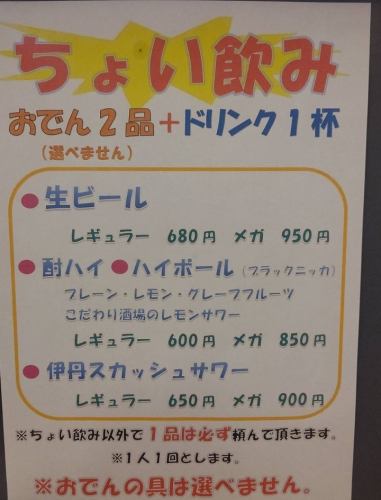 ちょい飲み
おでん2品+ドリンク1杯
(選べません)
●生ビール
レギュラー 680円 メガ 950円
●酎ハイ ●ハイボール (ブラックニッカ)
プレーン・レモン・グレープフルーツ
こだわり酒場のレモンサワー
レギュラー 600円 メガ 850円
●伊丹スカッシュサワー
レギュラー 650円 メガ 900円
※ちょい飲み以外で1品は必ず頼んで頂きます。
※1人1回とします。
※おでんの具は選べません。